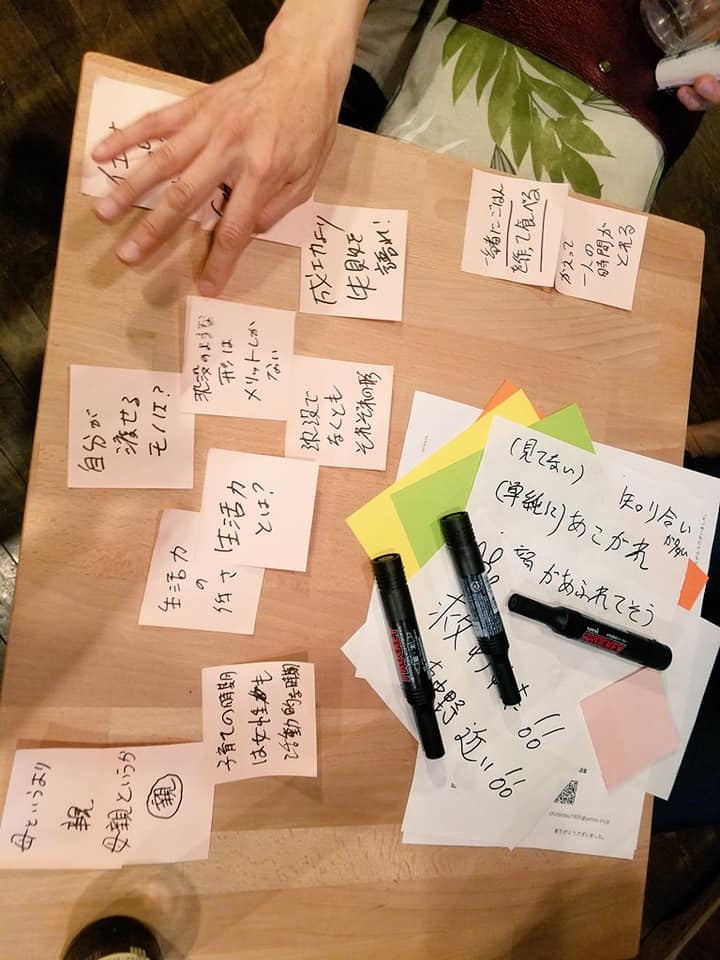 一緒にごはん
を作って食べる
かえって
一人の
時間が
とれる
成功より
失敗を
語れ!
渋沢のような
形は
メリットしか
ない
渋沢で
なくとも
それぞれの形
自分が
渡せる
モノは?
生活力
とは?
生活力
の
低さ
子育ての時期
は女性も
活動的な時期
母というより
親
母親というか
親
(見てない)
知り合い
が多い
(単純に)あこがれ
があふれてそう
近い!!
ありがとうございました。